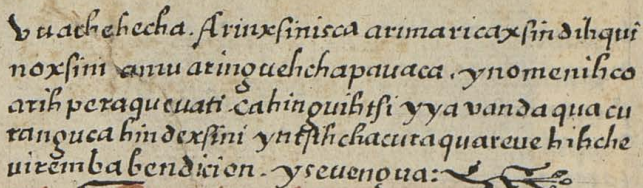 vuache hecha. Arinxsinisca arimaricaxsin dihqui
noxsini amuatinguehchapauaca. ynomenihco
arih peraqueuati. cahinguihtsi yya vandaqua cu
ranguca hindexsini yntsihchacuraquareue hihche
uiremba bendicion. yseuengua: